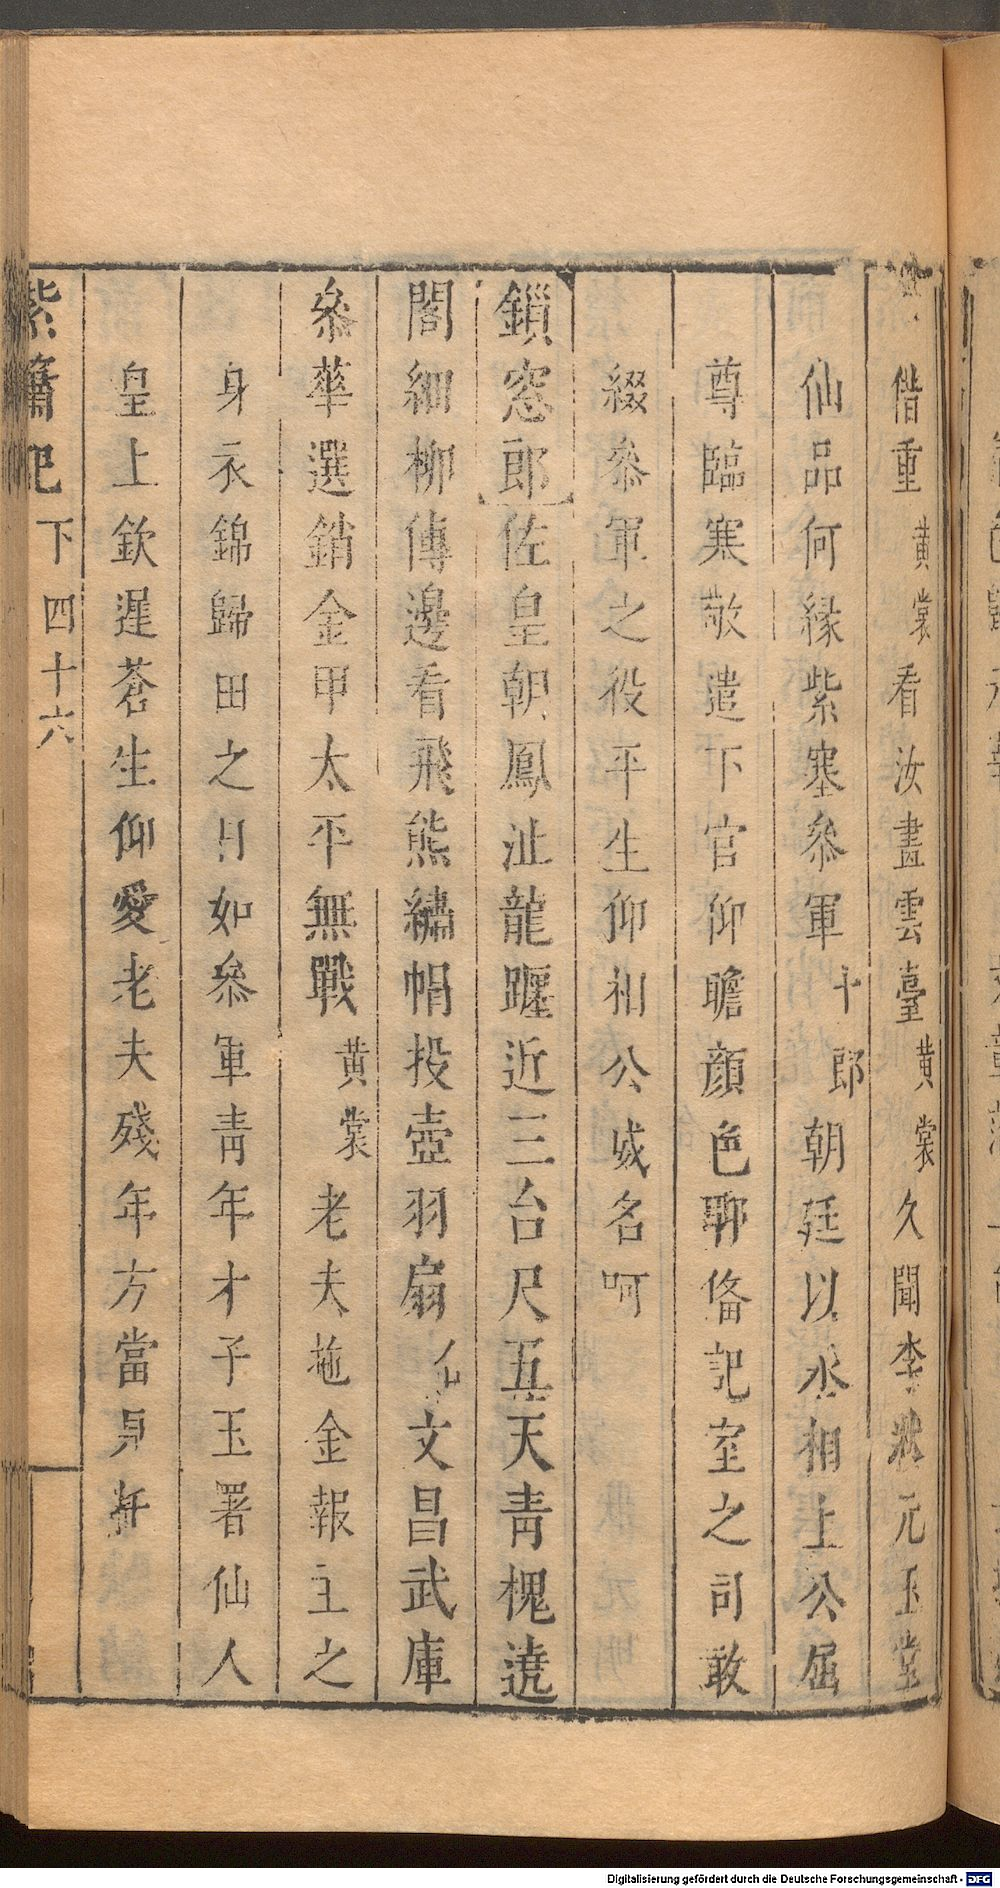 偕重黄裳看汝畫雲臺黄裳久聞李狀元玉堂
仙品何縁紫塞叅軍十郎朝廷以氶相上公屈
尊臨寒敬遣下官仰瞻顔色聊偹記室之司敢
綴叅軍之役平生仰相公威名呵
鎖窓郎佐皇朝鳳沚龍躔近三台尺五天青槐遶
閣細柳傳邊看飛熊繡帽投壺羽扇文昌武庫
叅華選銷金甲太平無戰黄裳老夫拖金報主之
身衣錦歸田之日如叅軍青年才子玉署仙人
皇上欽遲蒼生仰愛老夫殘年方當
紫簫記
下四十六
Digitalisierung gefördert durch die Deutsche Forschungsgemeinschaft - DFG